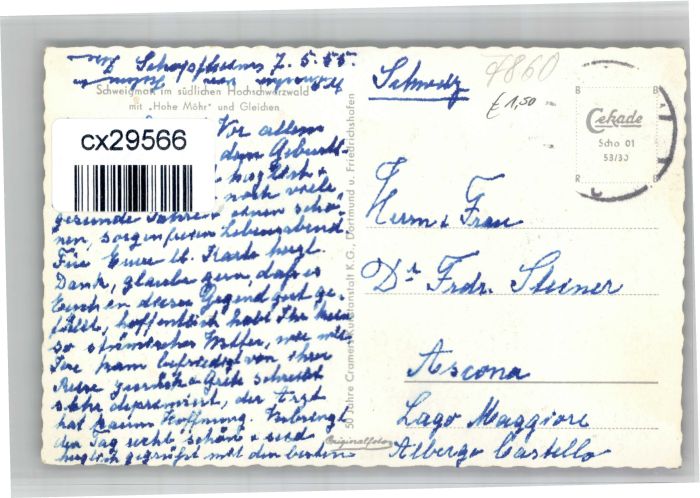 Schopfheim, 7.5.55.
Schweigmatt im südlichen Hochschwarzwald
mit „Hohe Möhr" und Gleichen
cx29566
Vor allem
dem Geburts-
herzlich +
noch viele,
gesunde Jahre + einen schö-
nen, sorgenfreien Lebensabend.
Für Eure lb. Karte herzl.
Dank, glaube gern, daß es
Euch in dieser Gegend gut ge-
fällt, hoffentlich habt Ihr kein
so stürmisches Wetter, wie wir.
kam befriedigt von ihrer
Reise zurück + Grete schreibt
sehr deprimiert, der Arzt
hat kaum Hoffnung. Verbringt
den Tag recht schön + seid
herzlich gegrüßt mit den besten
50 Jahre Cramers Kunstanstalt K.G., Dortmund u. Friedrichshafen
Originalfoto
Schweiz
4860
£ 1,50
B B
Cekade
Scho 01
53/30
R B
Herrn & Frau
Dr Frdr. Steiner
Ascona
Lago Maggiore
Albergo Castello